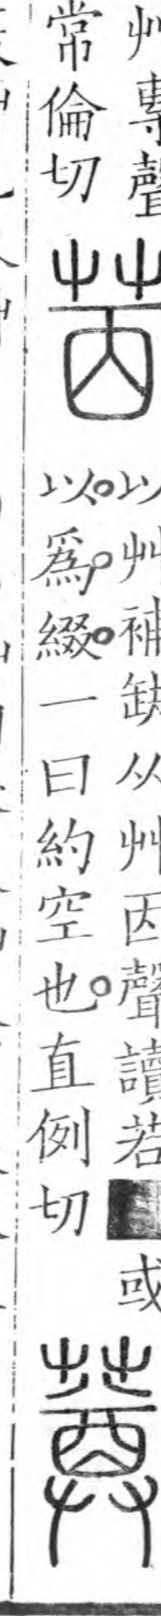 艸專聲
常倫切
䒸
以艸補缺从艸㐁聲讀若 或
以為綴一曰約空也直例切
䔿